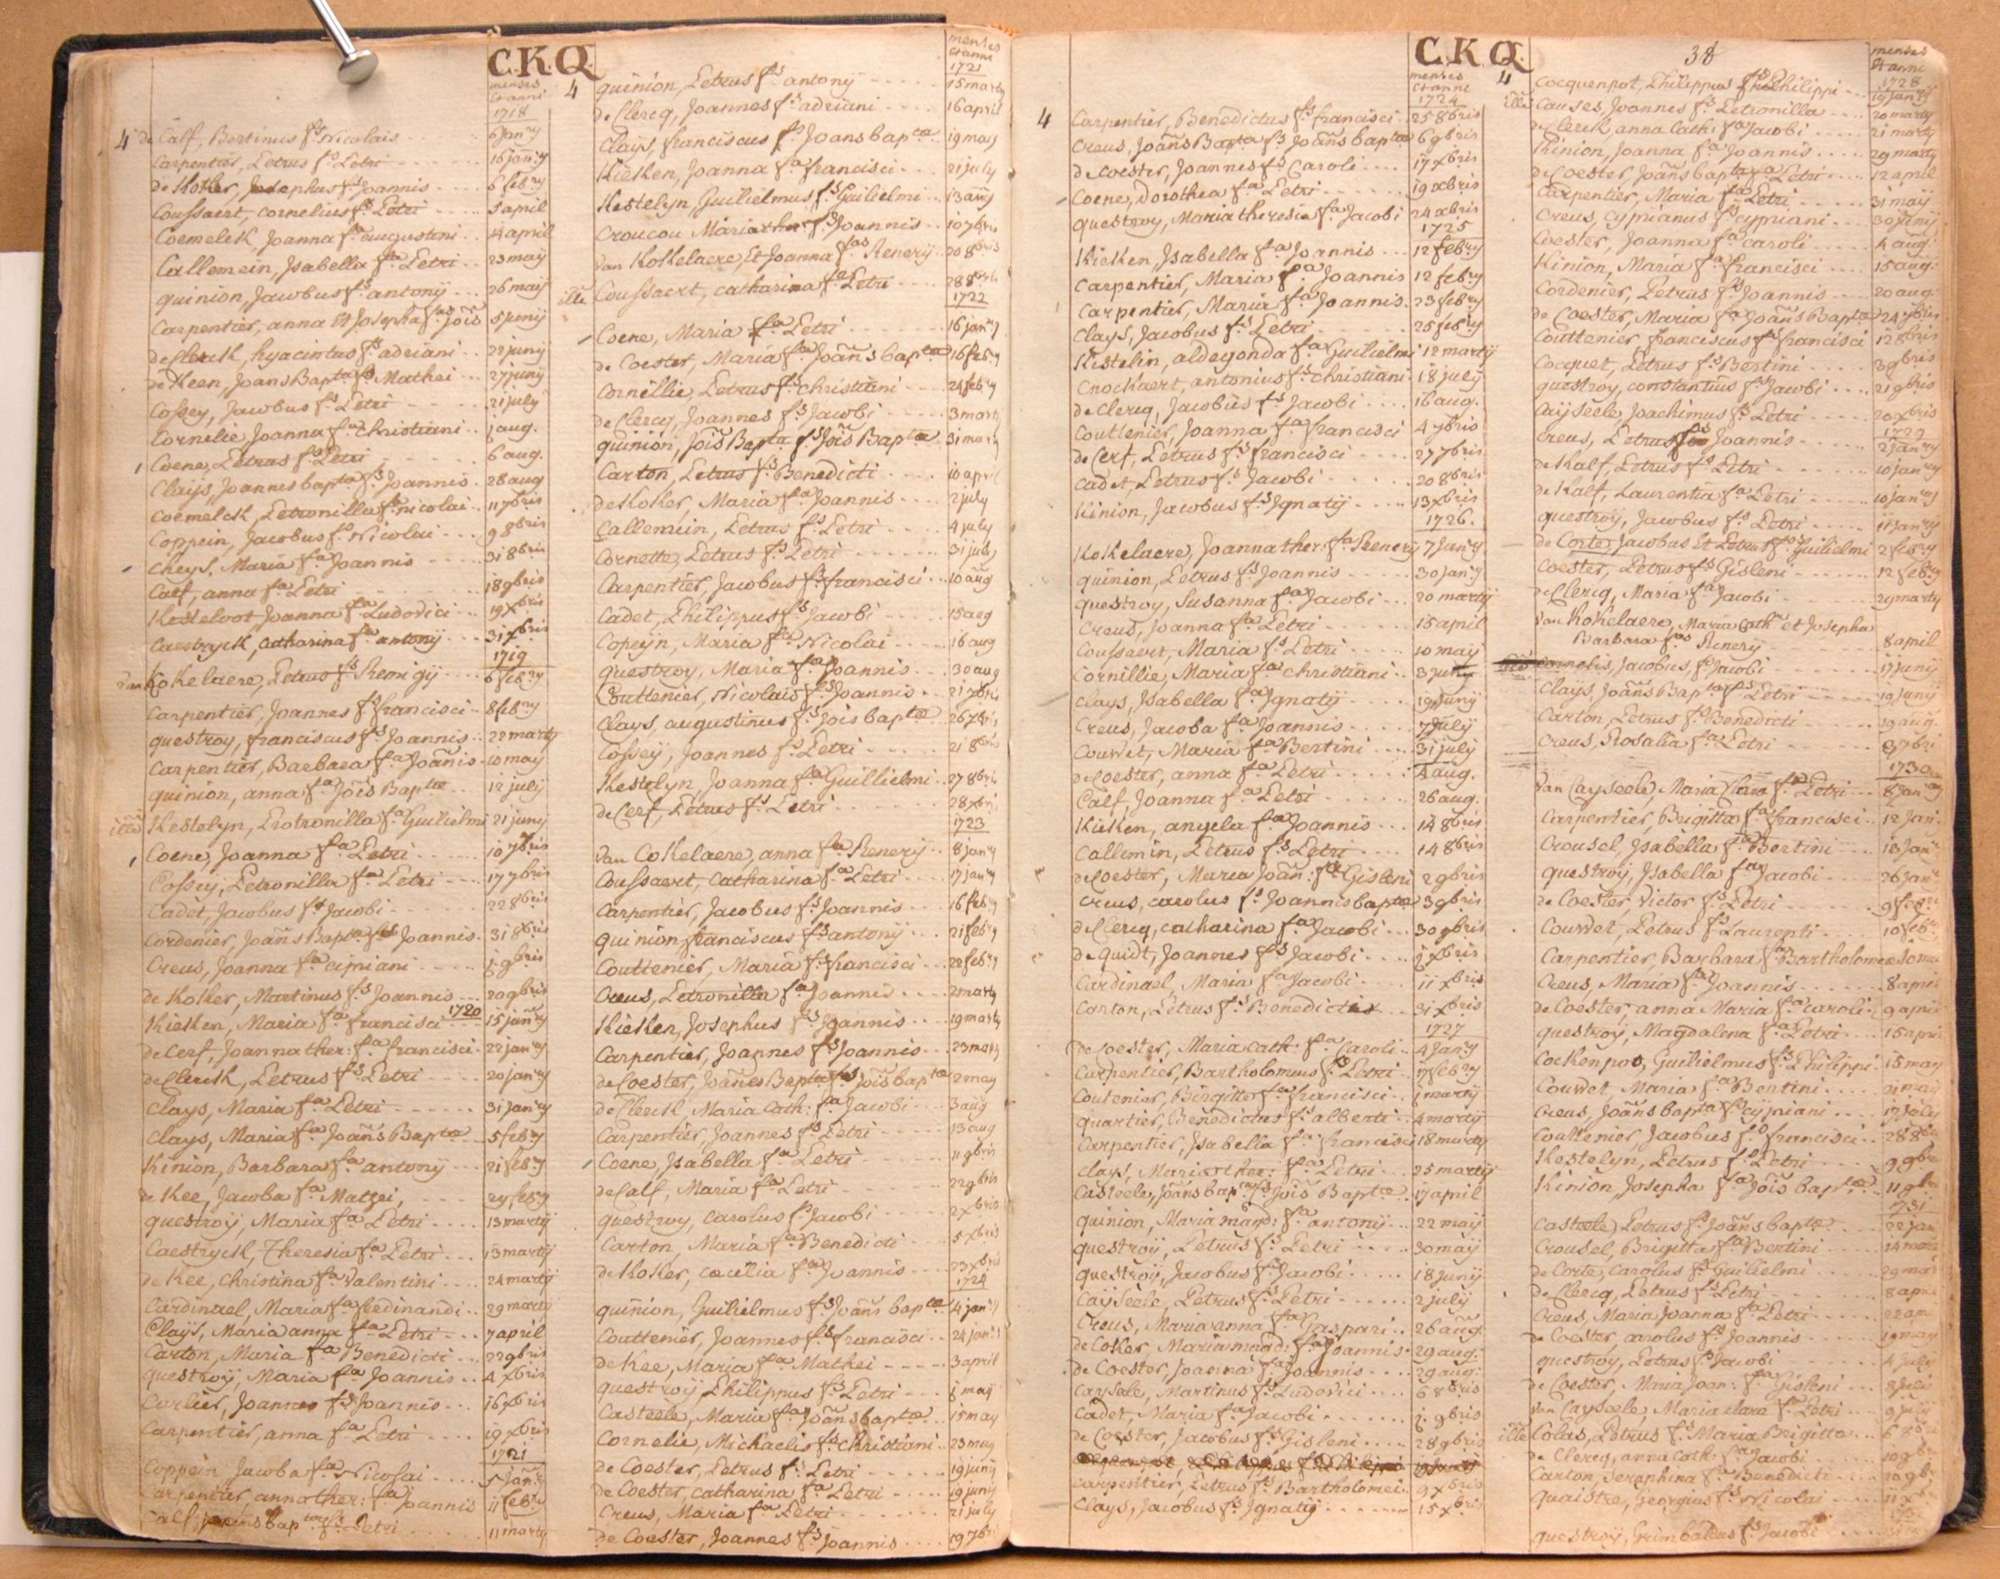 C.K.Q.
menses
et anni
1718
4 de Calf, Bertinus fs Nicolais 6 janry
Carpentier, Petrus fs Petri 16 janry
de Koker, Josephus fs Joannis 6 febry
Coussaert, Cornelius fs Petri 5 april
Coemelck Joanna fa augustini 4 april
Callemein, Isabella fa Petri 23 maij
quinion, Jacobus fs antonij 26 maij
Carpentier, anna et Josepha fae Jois 5 junij
de Clerck, hyacintus fs adriani 22 junij
de Keen, Joans Bapta fs Mathei 27 juny
Cossey, Jacobus fs Petri 21 july
Cornelie Joanna fa Christiani j aug.
Coene, Petrus fs Petri 6 aug.
Claijs, Joannes bapta fs Joannis 28 aug
Coemelck, Petronilla fa nicolai 11 7bris
Coppein, Jacobus fs Nicolai 9 8bris
Cheys, Maria fa Joannis 31 8bris
Calf, anna fa Petri 18 9bris
Kesteloot Joanna fa Ludovici 19 xbris
Caestryck, catharina fa antonij 31 xbris
1719
van Kokelaere, Petrus fs Remigij 6 febry
Carpentier, Joannes fs francisci 8 febry
questroy, franciscus fs Joannis 22 marty
Carpentier, Barbara fa Joannis 10 maij
quinion, anna fa Jois Baptae 12 julij
illa Kestelyn, Petronilla fa Guilielmi 21 juny
Coene, Joanna fa Petri 10 7bris
Cossey, Petronilla fa Petri 17 7bris
Cadet, Jacobus fs Jacobi 22 8bris
Cordenier, Joans Bapta fs Joannis 31 8bris
Creus, Joanna fa cipriani j 9bris
de Koker, Martinus fs Joannis 20 9bris
1720
Kieken, Maria fa francisci 15 janry
de Cerf, Joanna ther: fa francisci 22 janry
de Clerck, Petrus fs Petri 20 janry
Clays, Maria fa Petri 31 janry
Clays, Maria fa Joans Baptae 5 febry
Kinion, Barbara fa antonij 21 febry
de Kee, Jacoba fa Mathei 29 febry
questroij, Maria fa Petri 13 martij
Caestryck, Theresia fa Petri 13 martij
de Kee, Christina fa Valentini 24 martij
Cardinael, Maria fa fredinandi 29 marty
Claijs, Maria anna fa Petri 7 april
Carton, Maria fa Benedicti 22 9bris
questroij, Maria fa Joannis 4 xbris
Carlier, Joannes fs Joannis 16 xbris
Carpentier, anna fa Petri 19 xbris
1721
Coppein Jacoba fa Nicolai 5 janry
Carpentier, anna ther: fa Joannis 11 febry
Calf, Joans bapta fs Petri 11 marty
menses
et anni
1721
4 quinion, Petrus fs antonij 15 marty
de Clercq, Joannes fs adriani 16 april
Claijs, franciscus fs Joans baptae 19 may
Kieken, Joanna fa francisci 21 july
Kestelyn, Guilielmus fs Guilielmi 13 aug
Croucou Maria ther fa Joannis 10 7bris
van Kokelaere, et Joanna fae Renerij 20 8bris
illa Coussaert, catharina fa Petri 28 8bris
1722
Coene, Maria fa Petri 16 janry
de Coester, Maria fa Joans baptae 16 febry
Cornillie, Petrus fs Christiani 24 febry
de Clercq, Joannes fs Jacobi 3 marty
quinion, Jois Bapta fs Jois Baptae 31 marty
Carton, Petrus fs Benedicti 10 april
de Koker, Maria fa Joannis 2 july
Callemein, Petrus fs Petri 4 july
Cornette, Petrus fs Petri 31 july
Carpentier, Jacobus fs francisci 10 aug
Cadet, Philippus fs Jacobi 15 aug
Copeijn, Maria fa Nicolai 16 aug
questroy, Maria fa Joannis 30 aug
Couttenier, Nicolais fs Joannis 21 7bris
Clays, augustinus fs Jois baptae 26 7bris
Cossey, Joannes fs Petri 21 8bris
Kestelyn, Joanna fa Guillielmi 27 8bris
de Cerf, Petrus fs Petri 28 xbris
1723
van Cokelaere, anna fa Renerij 8 janry
Coussaert, Catharina fa Petri 17 janry
Carpentier, Jacobus fs Joannis 16 febry
quinion, franciscus fs antonij 21 febry
Couttenier, Maria fa francisci 22 febry
Creus, Petronilla fa Joannis 2 marty
Kieken, Josephus fs Joannis 19 marty
Carpentier, Joannes fs Joannis 23 marty
de Coester, Joanes Bapta fs Jois baptae 2 may
de Clerck, Maria Cath: fa Jacobi 3 aug
Carpentier, Joannes fs Petri 13 aug
Coene, Isabella fa Petri 11 9bris
de Calf, Maria fa Petri 22 9bris
questroy, Carolus fs Jacobi 2 xbris
Carton, Maria fa Benedicti 5 xbris
de Koker, Cecilia fa Joannis 23 xbris
1724
quinion, Guilielmus fs Joans baptae 4 janry
Couttenier, Joannes fs francisci 24 janry
de Kee, Maria fa Mathei 3 april
questroij Philippus fs Petri j maij
Casteele, Maria fa Joans baptae 15 may
Cornelie, Michaelis fs Christiani 23 may
de Coester, Petrus fs Petri 19 junij
de Coester, catharina fa Petri 19 junij
Creus, Maria fa Petri 21 july
de Coester, Joannes fs Joannis 19 7bris
C.K.Q.
menses
et anni
1724
4 Carpentier, Benedictus fs francisci 25 8bris
Creus, Joans Bapta fs Joans baptae 6 9bris
de Coester, Joannes fs Caroli 17 xbris
Coene, dorothea fa Petri 19 xbris
questroy, Maria theresia fa Jacobi 24 xbris
1725
Kieken, Isabella fa Joannis 12 febry
Carpentier, Maria fa Joannis 12 febry
Carpentier, Maria fa Joannis 23 febry
Clays, Jacobus fs Petri 25 febry
Kestelin, aldegonda fa Guilielmi 12 marty
Cnockaert, antonius fs Christiani 18 july
de Clercq, Jacobus fs Jacobi 16 aug.
Couttenier, Joanna fa francisci 4 7bris
de Cerf, Petrus fs francisci 27 7bris
Cadet, Petrus fs Jacobi 20 8bris
Kinion, Jacobus fs Ignatij 13 xbris
1726.
Kokelaere, Joanna ther: fa Renerij 7 janry
quinion, Petrus fs Joannis 30 janry
questroy, Susanna fa Jacobi 20 martij
Creus, Joanna fa Petri 15 april
Coussaert, Maria fa Petri 10 may
Cornillie, Maria fa Christiani 3 juny
Clays, Isabella fa Ignatij 19 juny
Creus, Jacoba fa Joannis 7 july
Couvret, Maria fa Bertini 31 july
de Coester, anna fa Petri 4 aug.
Calf, Joanna fa Petri 26 aug.
Kieken, angela fa Joannis 14 8bris
Callemin, Petrus fs Petri 14 8bris
de Coester, Maria Joan: fa Gisleni 2 9bris
Creus, carolus fs Joannis baptae 3 9bris
de Clercq, catharina fa Jacobi 30 9bris
de quidt, Joannes fs Jacobi j xbris
Cardinael, Maria fa Jacobi 11 xbris
Carton, Petrus fs Benedicti 31 xbris
1727
de Coester, Maria Cath: fa Caroli 4 janry
Carpentier, Bartholomeus fs Petri 17 febry
Coutenier, Birgitta fa francisci j martij
quartier, Benedictus fs alberti 4 martij
Carpentier, Isabella fa francisci 18 marty
Clays, Maria ther: fa Petri 25 martij
Casteele, Joans bapta fs Jois Baptae 17 april
quinion, Maria magd: fa antonij 22 maij
questroij, Petrus fs Petri 30 maij
questroij, Jacobus fs Jacobi 18 junij
Caijseele, Petrus fs Petri 2 julij
Creus, Maria anna fa Caspari 26 aug.
de Coker, Maria magd: fa Joannis 29 aug.
de Coester, Joanna fa Joannis 29 aug.
Caysele, Martinus fs Ludovici 6 8bris
Cadet, Maria fa Jacobi j 9bris
de Coester, Jacobus fs Gisleni 28 9bris
Carpentier, Petrus fs Bartholomei 9 xbris
Clays, Jacobus fs Ignatij 15 xbris
38
menses
et anni
1728
4 Cocquenpot, Philippus fs Philippi 19 janry
illa Causes, Joannes fs Petronilla 20 marty
de Clerck anna Cath: fa Jacobi 21 marty
Kinion, Joanna fa Joannis 29 marty
de Coester, Joans bapta fs Petri 12 april
Carpentier, Maria fa Petri 31 maij
Creus, Cyprianus fs cypriani 30 junij
Coester, Joanna fa caroli 4 aug.
Kinion, Maria fa francisci 15 aug.
Cordenier, Petrus fs Joannis 20 aug.
de Coester, Maria fa Joans Baptae 24 7bris
Couttenier, franciscus fs francisci 12 8bris
Cocquet, Petrus fs Bertini 3 9bris
questroy, constantius fs Jacobi 21 9bris
Caijseele Joachimus fs Petri 20 xbris
1729
Creus, Petrus fs Joannis 2 janry
de Kalf, Petrus fs Petri 10 janry
de Kalf, Laurentia fa Petri 10 janry
questroij, Jacobus fs Petri 11 janry
de Corte, Jacobus et Petrus fs Guilielmi 2 febry
Coester, Petrus fs Gisleni 12 febry
de Clercq, Maria fa Jacobi 29 marty
van Kokelaere, Maria Cath: et Josepha
Barbara fae Renerij 8 april
Cornelis, Jacobus, fs Jacobi 17 juny
Clays, Joans Bapta fs Petri 19 junij
Carton, Petrus fs Benedicti 19 aug.
Creus, Rosalia fa Petri 8 7bri
1730
van Cayseele, Maria Clara fa Petri 8 janry
Carpentier, Brigitta fa francisci 12 jan
Crousel, Isabella fa Bertini 13 jan
questroij, Isabella fa Jacobi 26 jan
de Coester, Victor fs Petri 9 feb
Couvret, Petrus fs Laurenti 10 feb
Carpentier, Barbara fa Bartholomei
Creus, Maria fa Joannis 8 april
de Coester, anna Maria fa Caroli 9 april
questroij, Magdalena fa Petri 15 april
Cockenpot, Guilielmus fs Philippi 15 may
Couvret, Maria fa Bertini 21 maij
Creus, Joans bapta fs Cypriani 17 july
Couttenier, Jacobus fs francisci 28 8bris
Kestelyn, Petrus fs Petri 9 9bris
Kinion, Josepha fa Jois baptae 11 9bris
1731
Casteele, Petrus fs Joans baptae 22 jan
Crousel, Brigitta fa Bertini 14 mar
de Corte, Carolus fs Guilielmi 29 mar
de Clercq, Petrus fs Petri 8 april
Creus, Maria Joanna fa Petri 22 april
de Coester, Carolus fs Joannis 19 may
questroy, Petrus fs Jacobi 4 july
de Coester, Maria Joan: fa Gisleni 8 july
van Cayseele, Maria clara fa Petri 9 july
illa Colas, Petrus fs Maria Brigitta 6
de Clercq, anna Cath: fa Jacobi
Carton, Seraphina fa Benedicti
Quaistre, Georgius fs Nicolai
questroij, Grimbaldus fs Jacobi